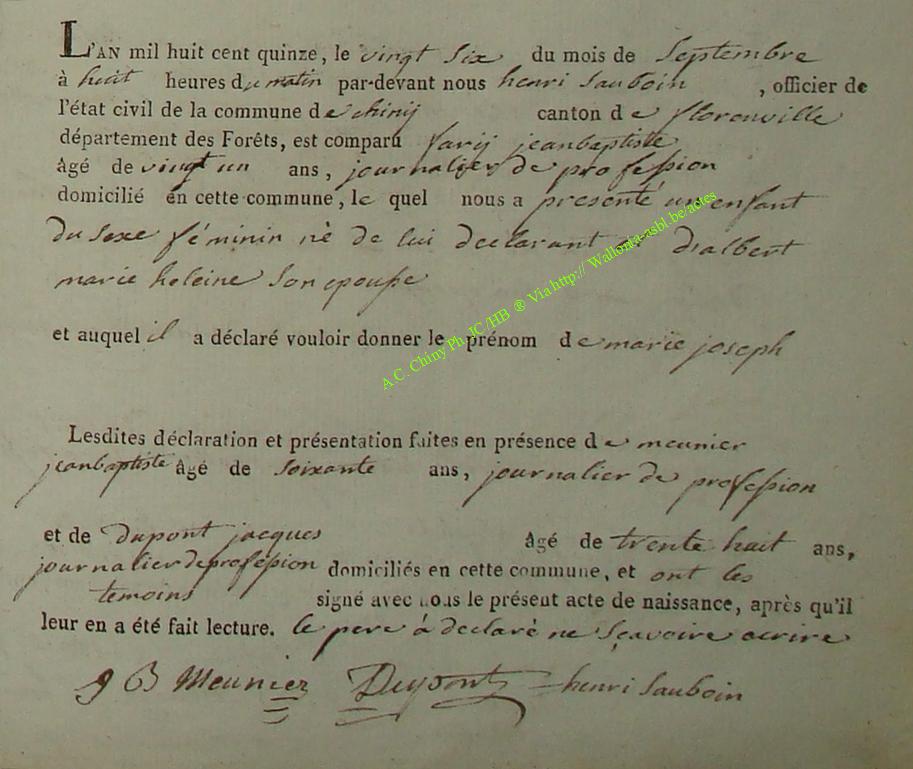 L'AN mil huit cent quinze, le vingt six du mois de Septembre
à huit heures du matin par-devant nous henri Sauboin, officier de
l'état civil de la commune de chinij canton de florenville
département des Forêts, est comparu farij jeanbaptiste
âgé de vingt un ans, journalier de profession
domicilié en cette commune, le quel nous a présenté un enfant
du sexe féminin nè de lui declarant et d'albert
marie heleine son epouse
et auquel il a déclaré vouloir donner le prénom de marie joseph
A.C. Chiny Ph. JC/HB ® Via http:// Wallonia-asbl.be/actes
Lesdites déclaration et présentation faites en présence de meunier
jeanbaptiste âgé de soixante ans, journalier de profession
et de dupont jacques âgé de trente huit ans,
journalier de profession domiciliés en cette commune, et ont les
temoins signé avec nous le présent acte de naissance, après qu'il
leur en a été fait lecture. le pere à declarè ne sçavoire ecrire
J B Meunier Dupont henri Sauboin